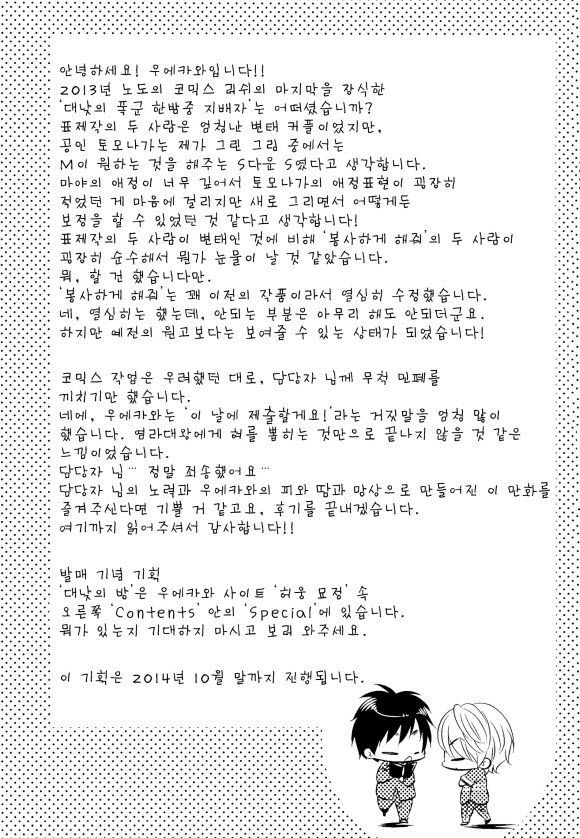 안녕하세요! 우에카와입니다!!
2013년 노도의 코믹스 러쉬의 마지막을 장식한
'대낮의 폭군 한밤중 지배자'는 어떠셨습니까?
표제작의 두 사람은 엄청난 변태 커플이었지만,
공인 토모나가는 제가 그린 그림 중에서는
M이 원하는 것을 해주는 S다운 S였다고 생각합니다.
마야의 애정이 너무 깊어서 토모나가의 애정표현이 굉장히
적었던 게 마음에 걸리지만 새로 그리면서 어떻게든
보정을 할 수 있었던 것 같다고 생각합니다!
표제작의 두 사람이 변태인 것에 비해 '봉사하게 해줘'의 두 사람이
굉장히 순수해서 뭔가 눈물이 날 것 같았습니다.
뭐, 할 건 했습니다만.
'봉사하게 해줘'는 꽤 이전의 작품이라서 열심히 수정했습니다.
네, 열심히는 했는데, 안되는 부분은 아무리 해도 안되더군요.
하지만 예전의 원고보다는 보여줄 수 있는 상태가 되었습니다!
코믹스 작업은 우려했던 대로, 담당자 님께 무척 민폐를
끼치기만 했습니다.
네에, 우에카와는 '이 날에 제출할게요!'라는 거짓말을 엄청 많이
했습니다. 염라대왕에게 혀를 뽑히는 것만으로 끝나지 않을 것 같은
느낌이었습니다.
담당자 님… 정말 죄송했어요…
담당자 님의 노력과 우에카와의 피와 땀과 망상으로 만들어진 이 만화를
즐겨주신다면 기쁠 거 같고요, 후기를 끝내겠습니다.
여기까지 읽어주셔서 감사합니다!!
발매 기념 기획
'대낮의 밤'은 우에카와 사이트 '허웅 묘정' 속
오른쪽 'Contents' 안의 'Special'에 있습니다.
뭐가 있는지 기대하지 마시고 보러 와주세요.
이 기획은 2014년 10월 말까지 진행됩니다.